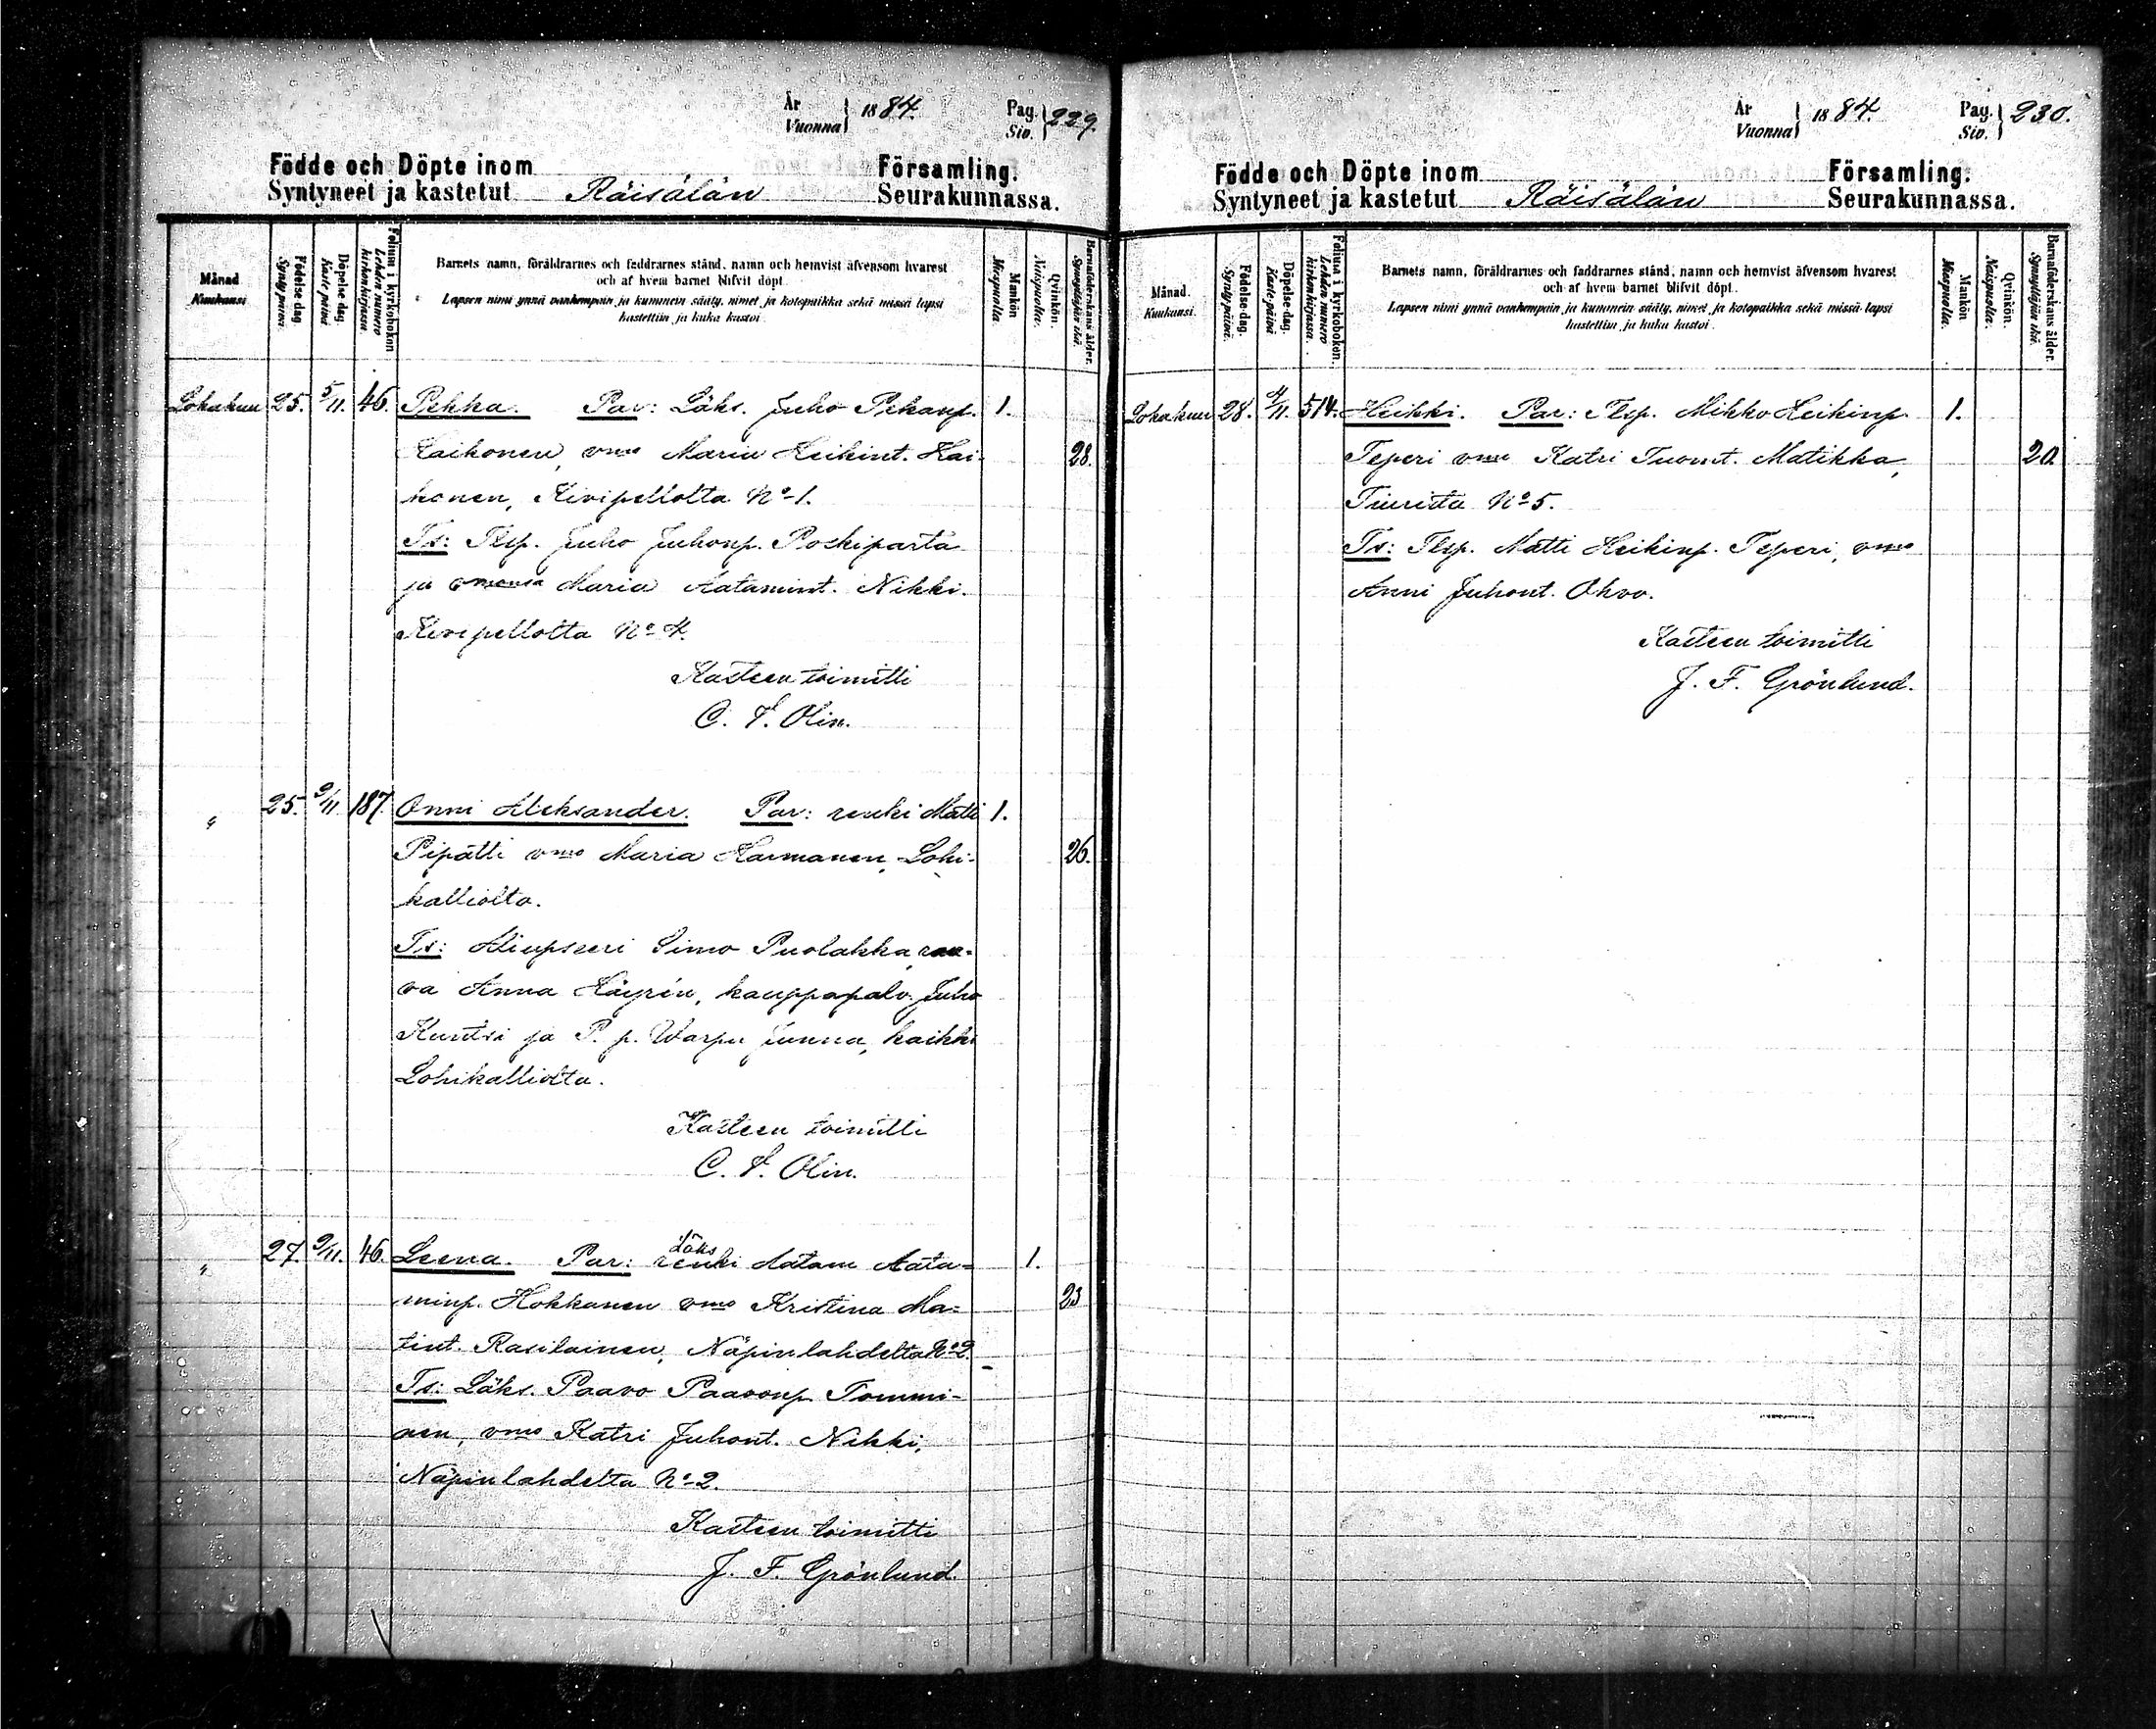 År
Vuonna 1884.
Pag.
Siv. 229.
Födde och Döpte inom Församling.
Syntyneet ja kastetut Räisälän Seurakunnassa.
Månad Kuukausi
Födelse dag Syntypäivä.
Döpelse dag. Kaste-päivä
Folium i kyrkobokon Lehden numero kirkonkirjassa.
Barnets namn, föräldrarnes och faddrarnes stånd, namn och hemvist äfvensom hvarest
och af hvem barnet blifvit döpt.
Lapsen nimi ynnä vanhempain ja kummein sääty, nimet ja kotopaikka sekä missä lapsi
kastettiin ja kuka kastoi.
Mankön Miespuolta
Qvinkön. Naispuolta.
Barnaföderskans ålder. Synnyttäjän ikä.
Lokakuu 25. 5/11. 46. Pekka. Par: Läks. Juho Pekanp. 1.
Kaikonen, vmo Maria Heikint. Kai- 28.
konen, Kivipellolta No 1.
Ts: Tlsp. Juho Juhonp. Poskiparta
ja vmonsa Maria Aatamint. Nikki.
Kivipellolta No 4.
Kasteen toimitti
C. F. Olin.
" 25. 9/11. 187. Onni Aleksander. Par: renki Matti 1.
Pipatti vmo Maria Karmanen, Lohi- 26.
kalliolta.
Ts: Aliupseeri Simo Puolakka, rou-
va Anna Häyrén, kauppapalv. Juho
Kuntsi ja P. p. Warpu Junna, kaikki
Lohikalliolta.
Kasteen toimitti
C. F. Olin.
läks
" 27. 9/11. 46. Leena. Par: renki Aatam Aata- 1.
minp. Hokkanen vmo Kristina Ma- 23
tint. Rasilainen, Näpinlahdelta No 2.
Ts: Läks. Paavo Paavonp. Tommi-
nen, vmo Katri Juhont. Nikki,
Näpinlahdelta No 2.
Kasteen toimitti
J. F. Grönlund.
År
Vuonna 1884.
Pag.
Siv. 230.
Födde och Döpte inom Församling.
Syntyneet ja kastetut Räisälän Seurakunnassa.
Månad. Kuukausi.
Födelse-dag. Syntypäivä.
Döpelse-dag. Kaste-päivä.
Folium i kyrkobokon. Lehden numero kirkonkirjassa.
Barnets namn, föräldrarnes och faddrarnes stånd, namn och hemvist äfvensom hvarest
och af hvem barnet blifvit döpt.
Lapsen nimi ynnä vanhempain ja kummein sääty, nimet ja kotopaikka sekä missä lapsi
kastettiin ja kuka kastoi.
Mankön Miespuolta.
Qvinkön. Naispuolta.
Barnaföderskans ålder. Synnyttäjän ikä.
Lokakuu 28. 514. Heikki. Par: Tlsp. Mikko Heikinp. 1.
Teperi vmo Katri Tuomt. Matikka, 20.
Tiurista No 5.
Ts: Tlsp. Matti Heikinp. Teperi, vmo
Anni Juhont. Ohvo.
Kasteen toimitti
J. F. Grönlund.